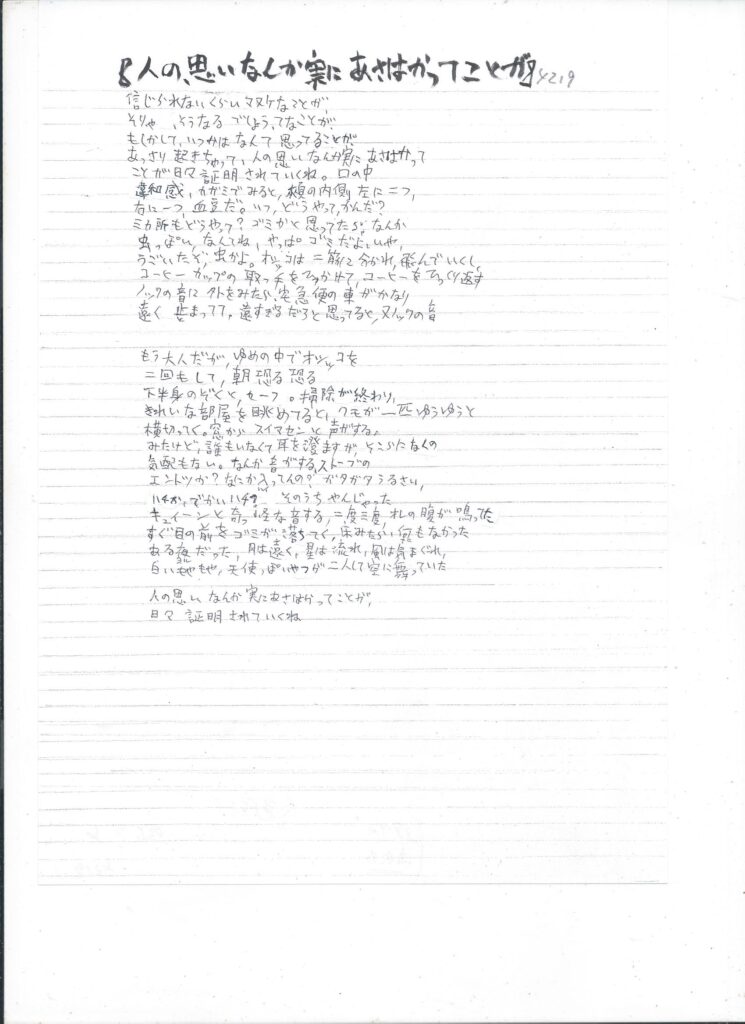 人の思いなんか実にあさはかってことが 4219
信じられないくらいマヌケなことが、
そりゃ、そうなるでしょう、てなことが、
もしかして、いつかはなんて思ってることが、
あっさり起きちゃって、人の思いなんか実にあさはかって
ことが日々証明されていくね。口の中
違和感、カガミでみると、頬の内側、左に二つ、
右に一つ、血豆だ。いつ、どうやって、かんだ?
三カ所もどうやって?ゴミかと思ってたら、なんか
虫っぽい、なんてね、やっぱゴミだよ、いや、
うごいたぞ、虫かよ。オシッコは二筋に分かれ、飛んでいくし、
コーヒーカップの取っ手をひっかけて、コーヒーをひっくり返す
ノックの音に外をみたら、宅急便の車がかなり
遠く止まってて、遠すぎるだろと思ってると、又ノックの音
もう大人だが、ゆめの中でオシッコを
二回もして、朝恐る恐る
下半身のぞくと、セーフ。掃除が終わり、
きれいな部屋を眺めてると、クモが一匹ゆうゆうと
横切ってく。窓からスイマセンと声がする、
みたけど、誰もいなくて耳を澄ますが、そこらに人の
気配もない。なんか音がする、ストーブの
エントツか?なにか入ってんの?ガタガタうるさい、
ハチか、でかいハチ? そのうちやんじゃった
キュイーンと奇っ怪な音する、二度三度、私の腹が鳴ってた
すぐ目の前をゴミが落ちてく、床みたらい何もなかった
ある夜だった、月は遠く、星は流れ、風は気まぐれ、
白い もや、天使っぽいやつが二人して空に舞っていた
人の思いなんか実にあさはかってことが、
日々証明されていくね